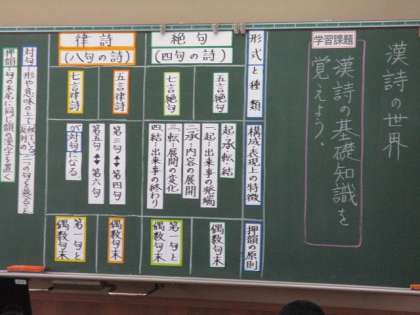 漢詩の世界
学習課題
漢詩の基礎知識を
覚えよう。
形式と種類
構成・表現上の特徴
押韻の原則
絶句
(四句の詩)
五言絶句
七言絶句
起承転結
一起…出来事の発端
二承…内容の展開
三転…展開の変化
四結…出来事の終わり
偶数句末
第一句と
偶数句末
律詩
(八句の詩)
五言律詩
七言律詩
第三句⇔第四句
第五句⇔第六句
が対句になる
偶数句末
第一句と
偶数句末
対句
形や意味の上で
二つの句を並べること
押韻
句の末尾に同じ韻の漢字を置く